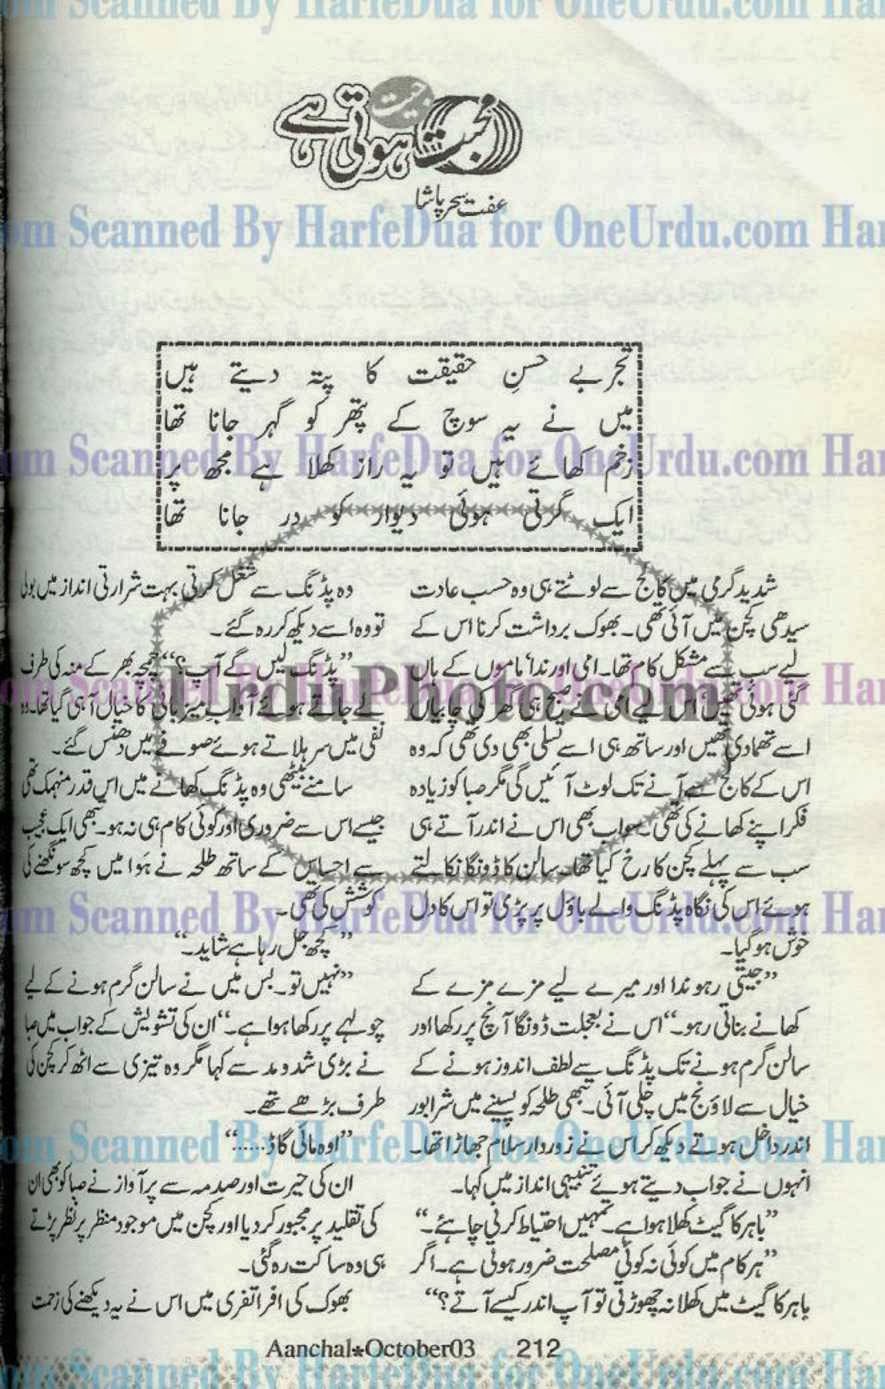 محبت جیت ہوتی ہے
عفت سحر پاشا
تجربے حسنِ حقیقت کا پتہ دیتے ہیں
میں نے یہ سوچ کے پتھر کو گہر جانا تھا
زخم کھائے ہیں تو یہ راز کھلا ہے مجھ پر
ایک گرتی ہوئی دیوار کو در جانا تھا
شدید گرمی میں کالج سے لوٹتے ہی وہ حسب عادت
سیدھی کچن میں آئی تھی۔ بھوک برداشت کرنا اس کے
لیے سب سے مشکل کام تھا۔ امی اور ندا ماموں کے ہاں
گئی ہوئی تھیں اس لیے امی نے صبح ہی گھر کی چابیاں
اسے تھما دی تھیں اور ساتھ ہی اسے تسلی بھی دی تھی کہ وہ
اس کے کالج سے آنے تک لوٹ آئیں گی مگر صبا کو زیادہ
فکر اپنے کھانے کی تھی۔ سو اب بھی اس نے اندر آتے ہی
سب سے پہلے کچن کا رخ کیا تھا۔ سالن کا ڈونگا نکالتے
ہوئے اس کی نگاہ پڈنگ والے باؤل پر پڑی تو اس کا دل
خوش ہو گیا۔
”جیتی رہو ندا اور میرے لیے مزے مزے کے
کھانے بناتی رہو۔“ اس نے بعجلت ڈونگا آنچ پر رکھا اور
سالن گرم ہونے تک پڈنگ سے لطف اندوز ہونے کے
خیال سے لاؤنج میں چلی آئی۔ تبھی طلحہ کو پسینے میں شرابور
اندر داخل ہوتے دیکھ کر اس نے زور دار سلام جھاڑا تھا۔
انہوں نے جواب دیتے ہوئے تنبیہی انداز میں کہا۔
”باہر کا گیٹ کھلا ہوا ہے۔ تمہیں احتیاط کرنی چاہئے۔“
”ہر کام میں کوئی نہ کوئی مصلحت ضرور ہوتی ہے۔ اگر
باہر کا گیٹ میں کھلا نہ چھوڑتی تو آپ اندر کیسے آتے؟“
وہ پڈنگ سے شغل کرتی بہت شرارتی انداز میں بولی
تو وہ اسے دیکھ کر رہ گئے۔
”پڈنگ لیں گے آپ؟“ چمچہ بھر کے منہ کی طرف
لے جاتے ہوئے آداب میزبانی کا خیال آ ہی گیا تھا۔ وہ
نفی میں سر ہلاتے ہوئے صوفے میں دھنس گئے۔
سامنے بیٹھی وہ پڈنگ کھانے میں اس قدر منہمک تھی
جیسے اس سے ضروری اور کوئی کام ہی نہ ہو۔ تبھی ایک عجیب
سے احساس کے ساتھ طلحہ نے ہوا میں کچھ سونگھنے کی
کوشش کی تھی۔
”کچھ جل رہا ہے شاید۔“
”نہیں تو۔ بس میں نے سالن گرم ہونے کے لیے
چولہے پر رکھا ہوا ہے۔“ ان کی تشویش کے جواب میں صبا
نے بڑی شد و مد سے کہا مگر وہ تیزی سے اٹھ کر کچن کی
طرف بڑھے تھے۔
”اوہ مائی گاڈ......“
ان کی حیرت اور صدمہ سے پر آواز نے صبا کو بھی ان
کی تقلید پر مجبور کر دیا اور کچن میں موجود منظر پر نظر پڑتے
ہی وہ ساکت رہ گئی۔
بھوک کی افراتفری میں اس نے یہ دیکھنے کی زحمت
Aanchal★October03 212
Scanned By HarfeDua for OneUrdu.com
UrduPhoto.com